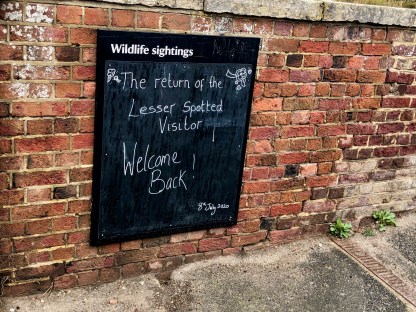 Wildlife sightings
The return of the
Lesser Spotted
Visitor!
Welcome
Back!
8th July 2020